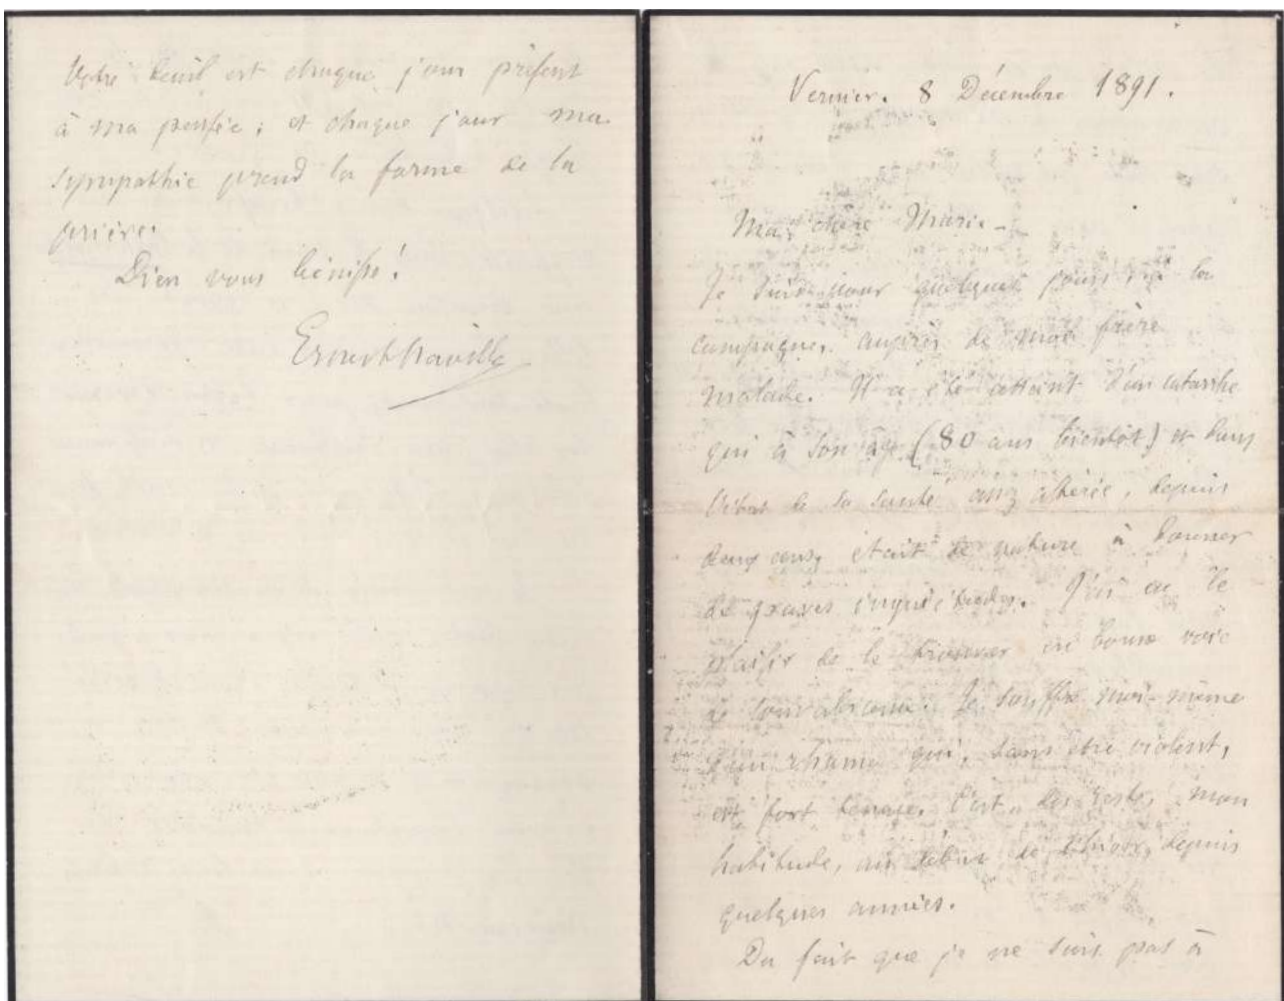 Votre deuil est chaque jour présent
à ma pensée ; et chaque jour ma
sympathie prend la forme de la
prière.
Dieu vous bénisse !
Ernest Naville
Vernier. 8 Décembre 1891.
Ma chère Marie -
Je suis pour quelques jours à la
campagne, auprès de mon frère
malade. Il a été atteint d'un catarrhe
qui à son âge (80 ans bientôt) et dans
l'état de sa santé assez altérée, depuis
deux ans, était de nature à donner
de graves inquiétudes. J'ai eu le
plaisir de le trouver en bonne voie
de convalescence. Je souffre moi-même
d'un rhume qui, sans être violent,
est fort tenace. C'est, du reste, mon
habitude, au début de l'hiver, depuis
quelques années.
Du fait que je ne suis pas à